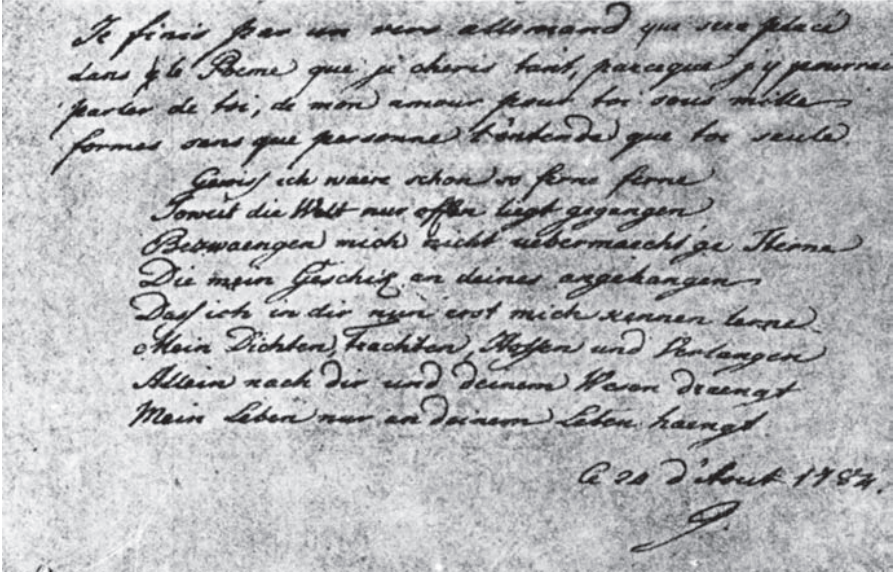 Je finis par un vers allemand qui sera placé
dans le Poeme que je cheris tant, parceque j'y pourrai
parler de toi, de mon amour pour toi sous mille
formes sans que personne l'entende que toi seule.
Gewiss ich waere schon so ferne ferne
Soweit die Welt nur offen liegt gegangen
Bezwaengen mich nicht uebermaechtge Sterne
Die mein Geschick an deines angehangen
Dass ich in dir nun erst mich kennen lerne
Mein Dichten, Trachten, Hoffen und Verlangen
Allein nach dir und deinem Wesen draengt
Mein Leben nur an deinem Leben haengt
Ce 24 d'Aout 1784.
G.